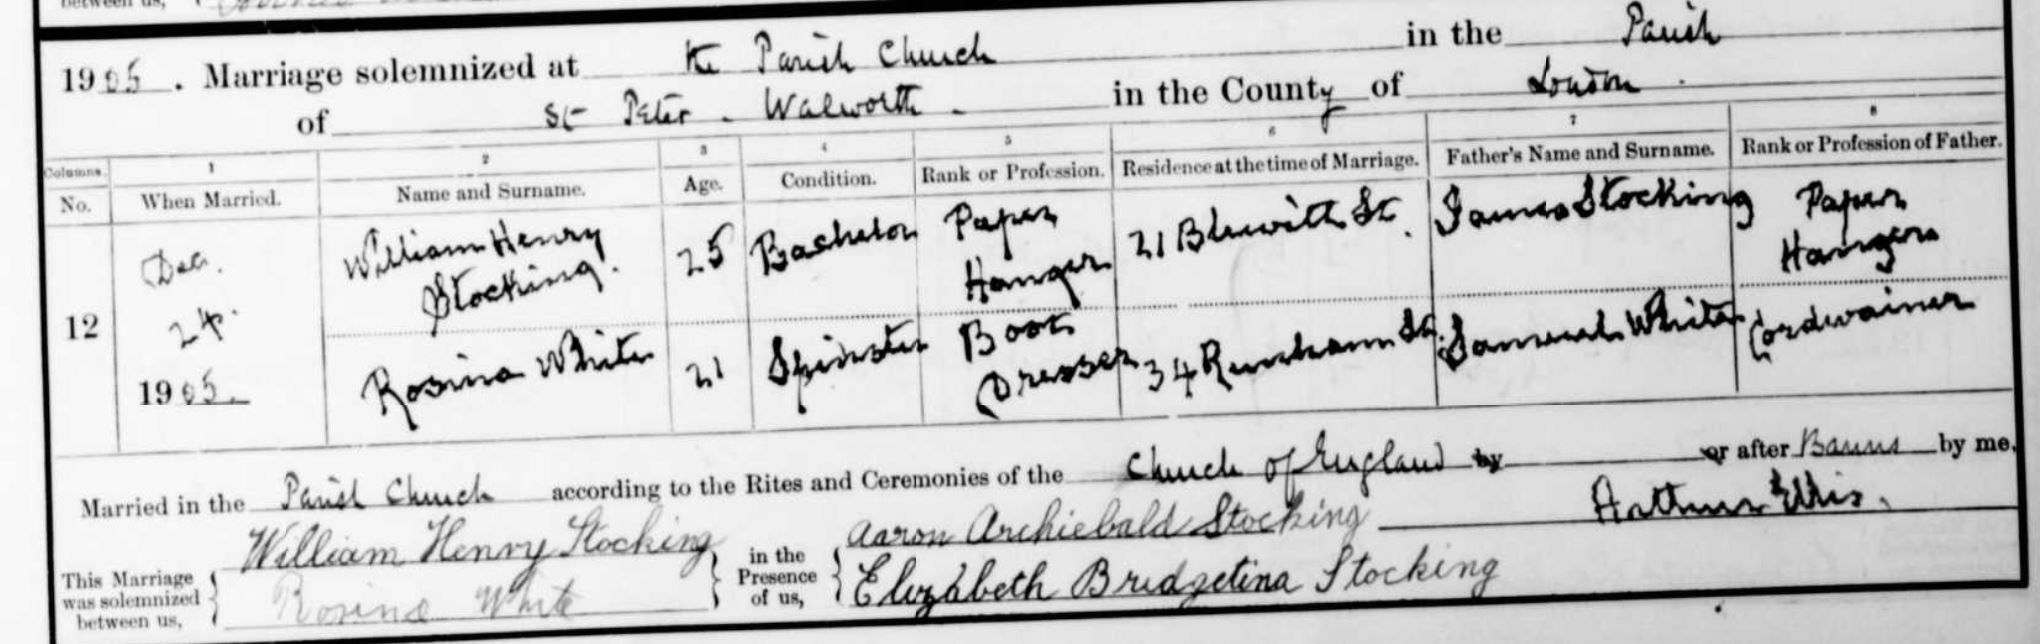 between us,
1905. Marriage solemnized at the Parish Church in the Parish
of St Peter - Walworth - in the County of London.
Columns. 1 2 3 4 5 6 7 8
No. When Married. Name and Surname. Age. Condition. Rank or Profession. Residence at the time of Marriage. Father's Name and Surname. Rank or Profession of Father.
12
Dec.
24.
1905.
William Henry
Stocking.
25
Bachelor
Paper
Hanger
21 Blewitt St.
James Stocking
Paper
Hanger
Rosina White
21
Spinster
Boot
Dresser
34 St.
Samuel White
Cordwainer
Married in the Parish Church according to the Rites and Ceremonies of the Church of England by or after Banns by me,
Arthur Ellis.
This Marriage
was solemnized
between us,
William Henry Stocking
Rosina White
in the
Presence
of us,
Aaron Archiebald Stocking
Elizabeth Bridgetina Stocking